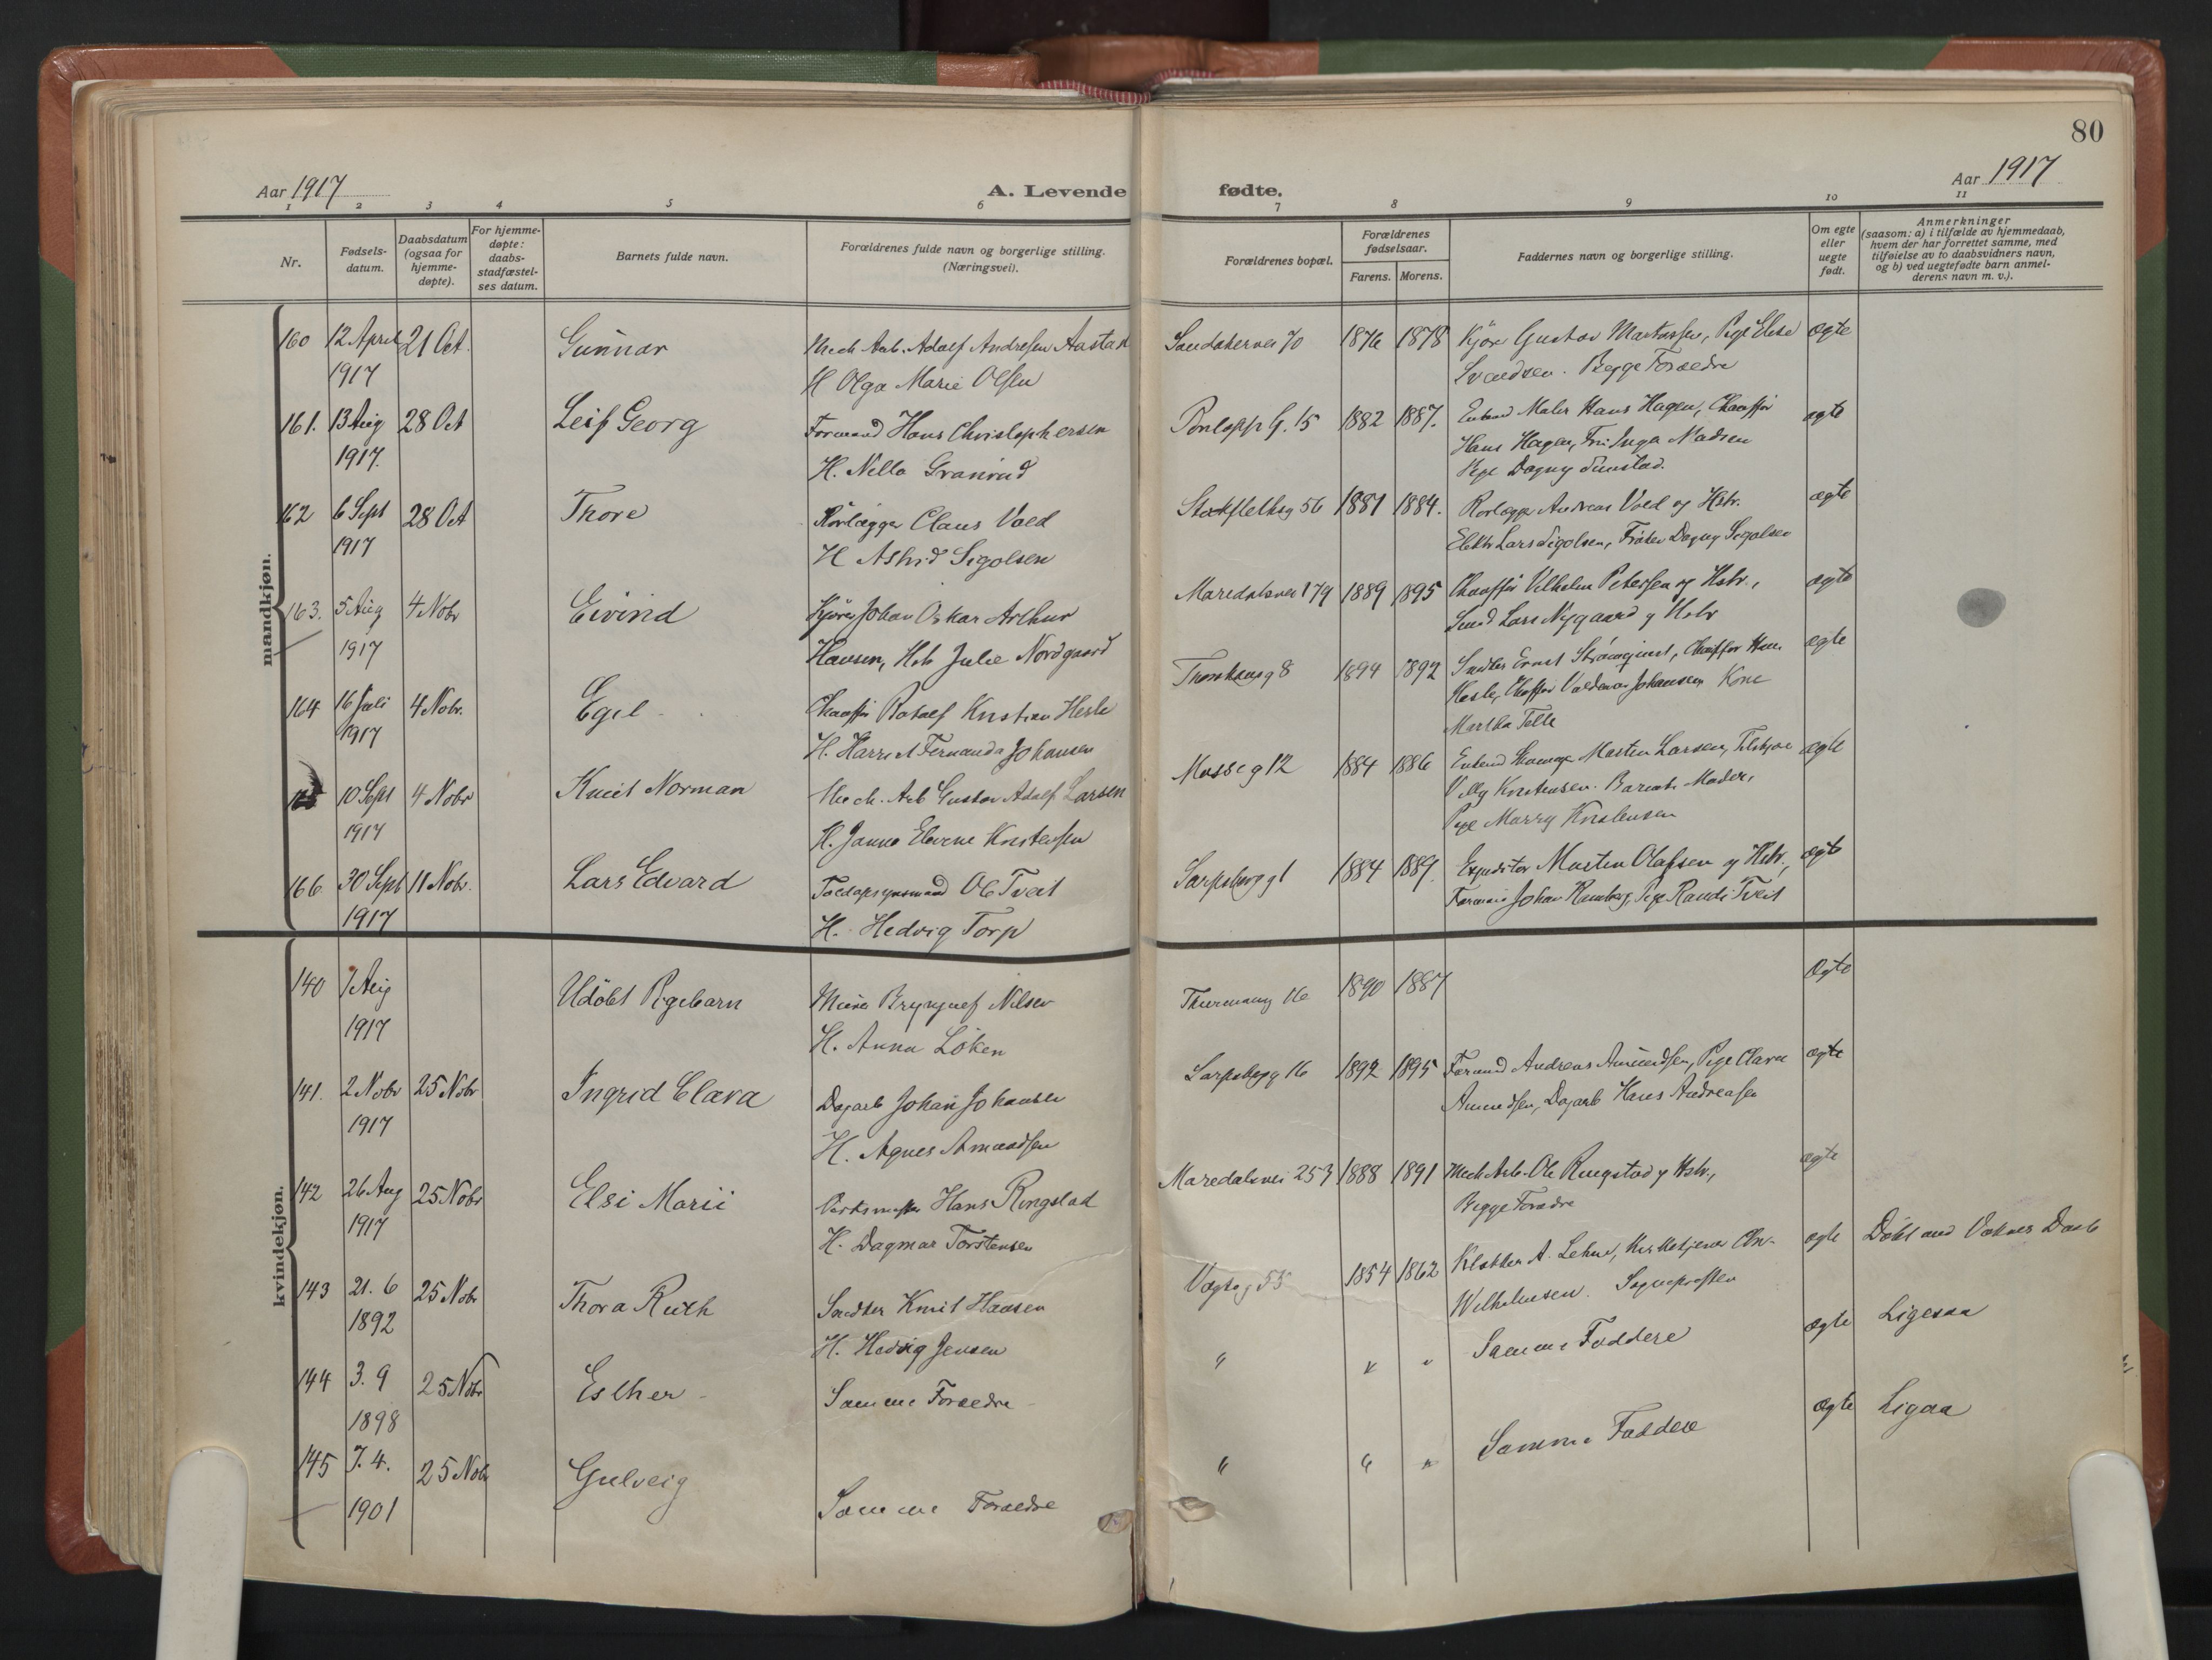 80
Aar 1917
A. Levende fødte.
Aar 1917
1 2 3 4 5 6 7 8 9 10 11
Nr.
Fødsels-
datum.
Daabsdatum
(ogsaa for
hjemme-
døpte).
For hjemme-
døpte:
daabs-
stadfæstel-
ses datum.
Barnets fulde navn.
Forældrenes fulde navn og borgerlige stilling.
(Næringsvei).
Forældrenes bopæl.
Forældrenes
fødselsaar.
Farens. Morens.
Faddernes navn og borgerlige stilling.
Om egte
eller
uegte
født.
Anmerkninger
(saasom: a) i tilfælde av hjemmedaab,
hvem der har forrettet samme, med
tilføielse av to daabsvidners navn,
og b) ved uegtefødte barn anmel-
derens navn m. v.).
mandkjøn.
160 12 April 21 Oct. Gunnar Mech Arb. Adolf Andresen Aastad Sandakervei 70 1876 1878 Kjører Gustav Martinsen, Pige Elise ægte
1917 H Olga Marie Olsen Svendsen. Begge Forældre
161. 13 Aug 28 Oct Leif Georg Formand Hans Christophersen 15 1882 1887. Maler Hans Hagen, Chauffør ægte
1917. H. Nella Granrud Hans Hagen, Frk Inga Madsen
Pige Dagny
162 6 Sept 28 Oct Thore Rörlægger Claus Vold 56 1881 1884. Rorlægger Andreas Vold og Hstr. ægte
1917 H Astrid Sigolsen Elektr Lars Sigolsen, Frøken Dagny Sigolsen
163. 5 Aug 4 Nobr Eivind Kjører Johan Oskar Arthur Maredalsvei 179 1889 1895 Chauffør Vilhelm Petersen og Hstr., ægte
1917 Hansen, Hstr Julie Nordgaard Smed Lars Nygaard og Hstr
164 16 Juli 4 Nobr. Egil Chauffør Rodolf Kristian Hesle 8 1894 1892 Snedker Ernst Strömquist, Chauffør ægte
1917 H. Harriet Fernanda Johansen Hesle, Chauffør Valdemar Johansen Kone
Martha Telle
10 Sept 4 Nobr Knut Norman Mech. Arb Gustav Adolf Larsen Mosseg 12 1884 1886 Martin Larsen, ægte
1917 H. Janna Elvine Kristensen Villy Kristensen. Barnets Moder,
Pige Marry Kristensen
166 30 Sept 11 Nobr. Lars Edvard Toldopsynsmand Ole Tveit Sarpsborgg 1 1884 1889. Expeditør Martin Olafsen og Hstr., ægte
1917 H. Hedvig Torp Formand Johan Ramberg, Pige Randi Tveit
kvindekjøn.
140 1 Aug Udöbt Pigebarn Murer Brynjulf Nilsen Thurmanng 16 1890 1887 Ægte
1917 H. Anna Löken
141. 2 Nobr 25 Nobr Ingrid Clara Dagarb Johan Johansen Sarpsborgg 16 1892 1895 Formand Andreas Amundsen, Pige Clara ægte
1917 H. Agnes Amundsen Amundsen, Dagarb Hans Andreasen
142 26 Aug 25 Nobr Elsi Marii Verksmester Hans Ringstad Maredalsvei 253 1888 1891 Mech Arb. Ole Ringstad og Hstr, ægte
1917 H. Dagmar Torstensen Begge Forældre
143 21. 6 25 Nobr Thora Ruth Snedker Knut Hansen Vogtsg 55 1854 1862 Klokker A. Lehne, Kirketjener Chr. ægte Döbt med Voksnes Daab
1892 H. Hedvig Jensen Wilhelmsen. Sogneprosten
144 3. 9 25 Nobr Esther Samme Forældre " " " Samme Faddere ægte Ligesaa
1898
145 7. 4. 25 Nobr Gulveig Samme Forældre " " " Samme Faddere ægte Ligsaa
1901